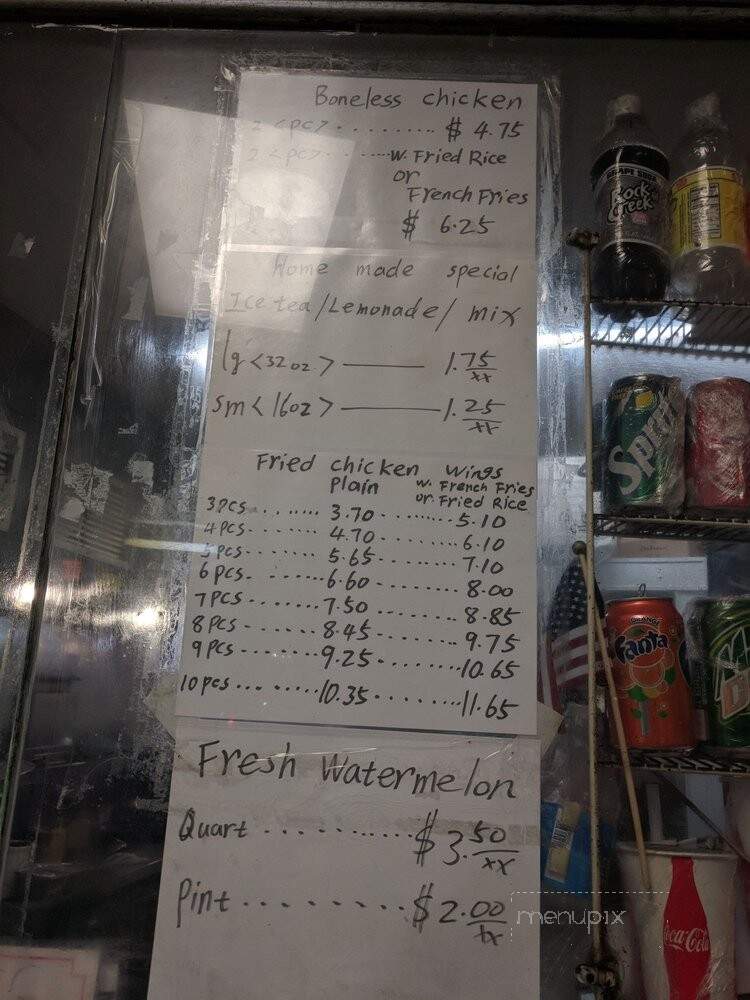 Boneless chicken
2 <pc> ......... $ 4.75
2 <pc> ........ w. Fried Rice
or
French Fries
$ 6.25
Home made special
Ice tea/Lemonade/ mix
lg <32oz> ——— 1.75
xx
sm <16oz> ——— 1.25
xx
Fried chicken Wings
Plain w. French Fries
or Fried Rice
3 PCS......... 3.70.........5.10
4 PCS......... 4.70.........6.10
5 PCS......... 5.65.........7.10
6 PCS.........6.60.........8.00
7 PCS.........7.50.........8.85
8 PCS.........8.45.........9.75
9 PCS.........9.25.........10.65
10 pcs.........10.35.........11.65
Fresh Watermelon
Quart ........... $ 3.50
xx
Pint ......... $ 2.00
tx
GRAPE SODA
Rock Creek
Sprite
ORANGE
Fanta
Coca-Cola
menupix